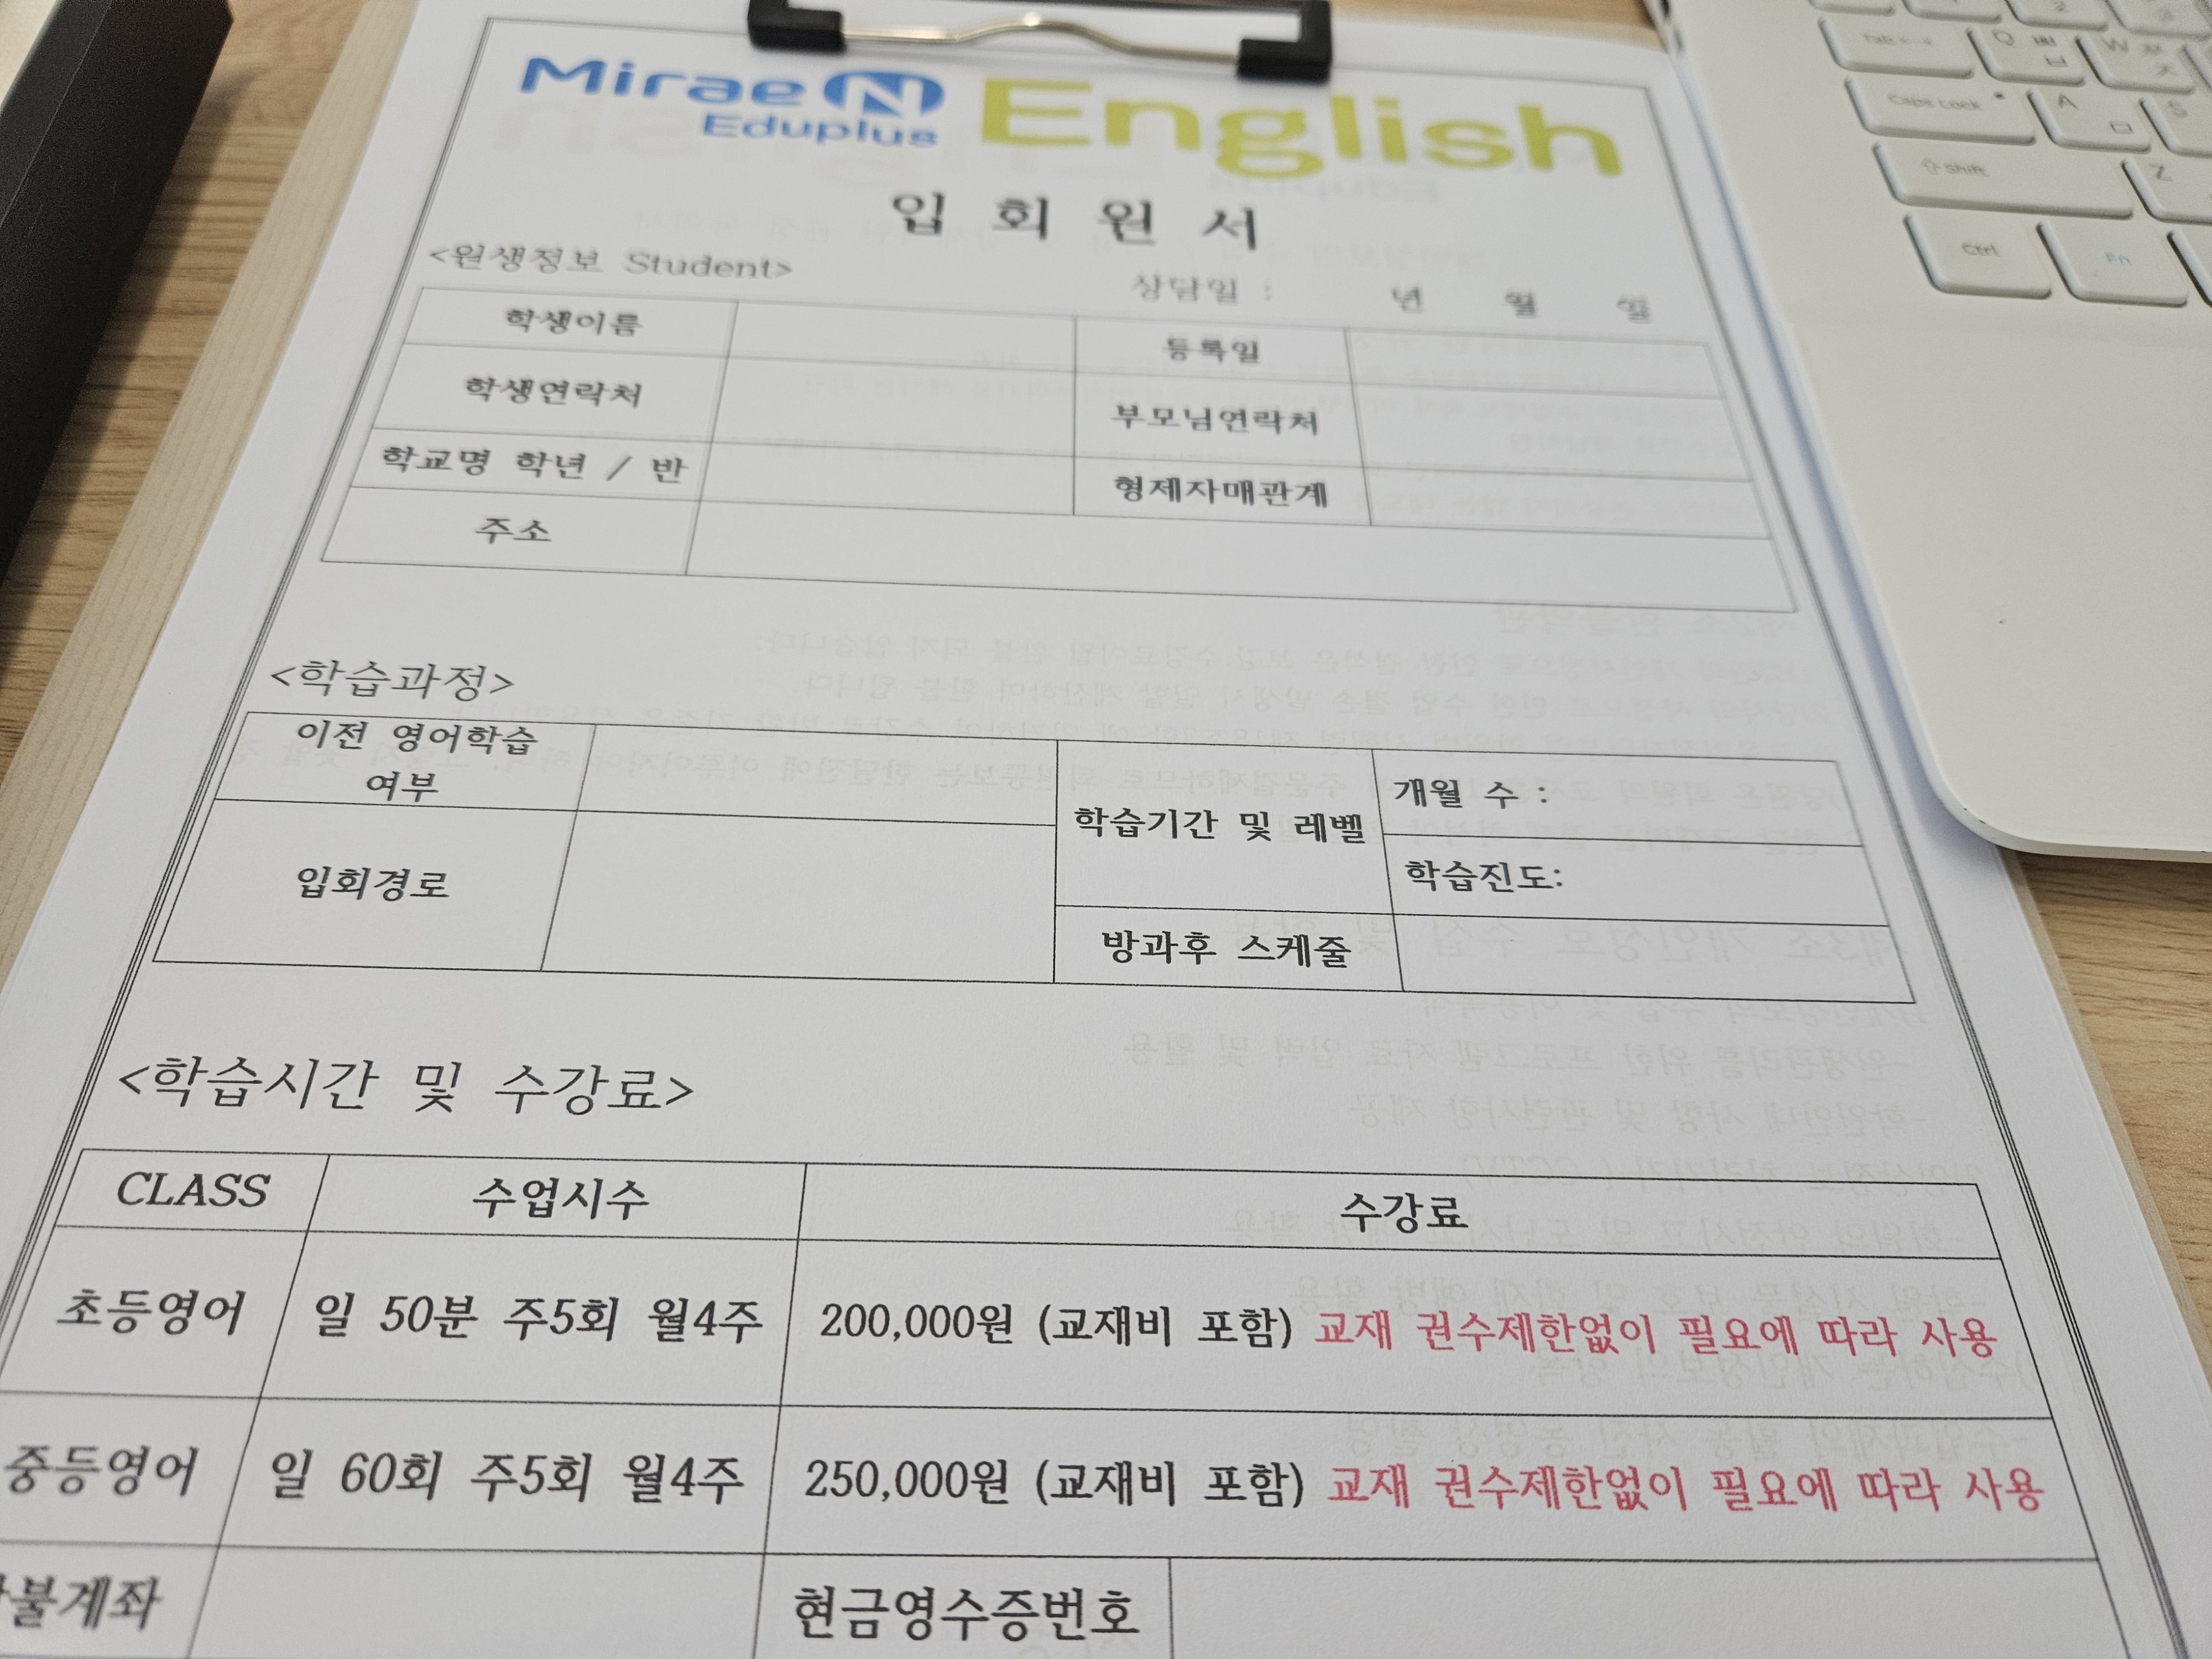 Mirae N English
Eduplus
입 회 원 서
<원생정보 Student>
상담일 : 년 월 일
학생이름
등록일
학생연락처
부모님연락처
학교명 학년 / 반
형제자매관계
주소
<학습과정>
이전 영어학습
여부
학습기간 및 레벨
개월 수 :
학습진도:
입회경로
방과후 스케줄
<학습시간 및 수강료>
CLASS 수업시수 수강료
초등영어 일 50분 주5회 월4주 200,000원 (교재비 포함) 교재 권수제한없이 필요에 따라 사용
중등영어 일 60회 주5회 월4주 250,000원 (교재비 포함) 교재 권수제한없이 필요에 따라 사용
불계좌 현금영수증번호
Tab
Q ㅂ
W ㅈ
Caps Lock
A ㅁ
S
Shift
Z
Ctrl
Fn